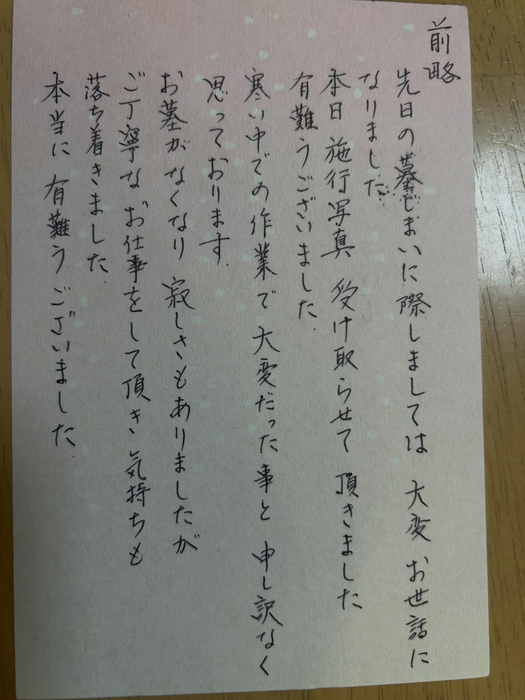 前略
先日の墓じまいに際しましては 大変 お世話に
なりました
本日 施行写真 受け取らせて 頂きました
有難うございました.
寒い中での作業で 大変だった事と 申し訳なく
思っております.
お墓がなくなり 寂しさもありましたが
ご丁寧な お仕事をして頂き 気持ちも
落ち着きました.
本当に 有難うございました.